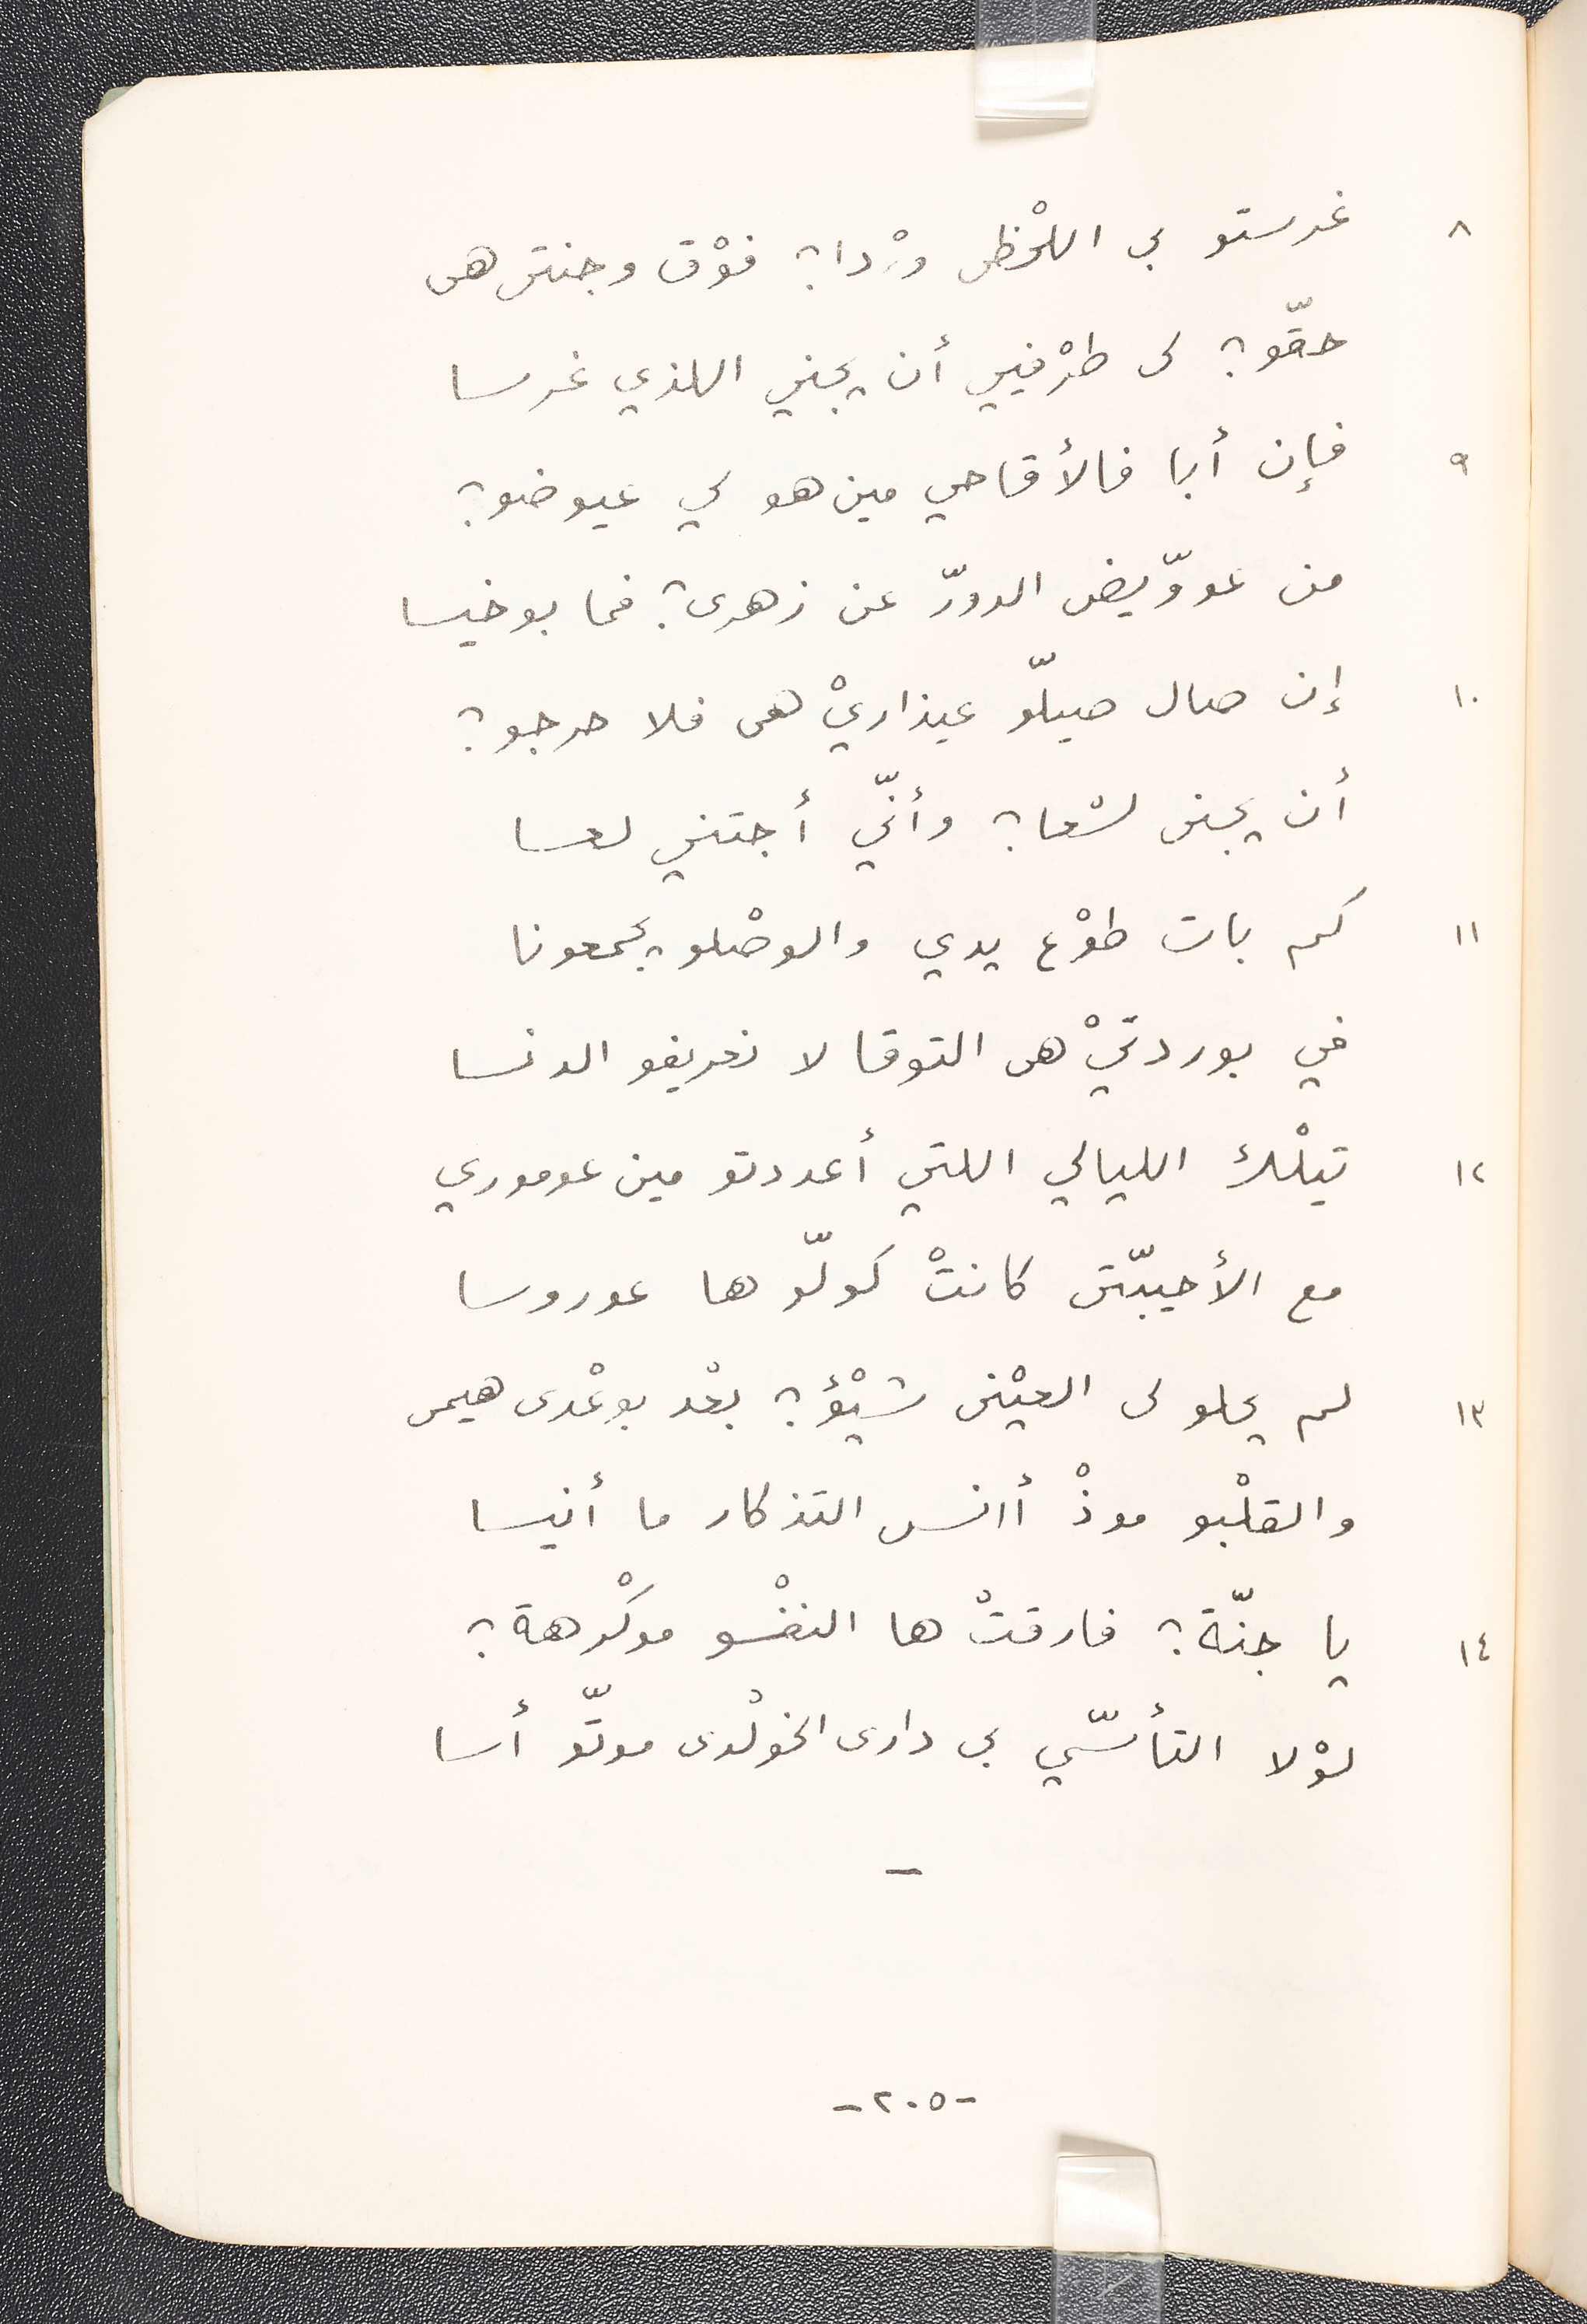 ٨ غرستو بى اللحْظى ورْدا؟ فوْق وجنتى هى
حقّو؟ لى طرْفيي أن يجني اللذي غرسا
٩ فإن أبا فالأقاحي مين هو لي عيوضو؟
من عووّيض الدورّ عن زهرى؟ فما بوخيسا
١٠ إن صال صيلّو عيذاريْ هى فلا حرجو؟
أن يجنى لسْعا؟ وأنّي أجتني لعسا
١١ كم بات طوْع يدي والوصْلو يجمعونا
في بوردتيْ هى التوقا لا نعريفو الدنسا
١٢ تيلْك الليالي اللتي أعددتو مين عوموري
مع الأحيبّتى كانتْ كولّو ها عوروسا
١٣ لم يحلو لى العيْنى شيْؤ؟ بعْد بوعْدى هيمى
والقلْبو موذْ أانس التذكار ما أنيسا
١٤ يا جنّة؟ فارقتْ ها النفْسو موكْرهة؟
لوْلا التأسّي بى دارى الخولْدى موتّو أسا
—
-٢٠٥-